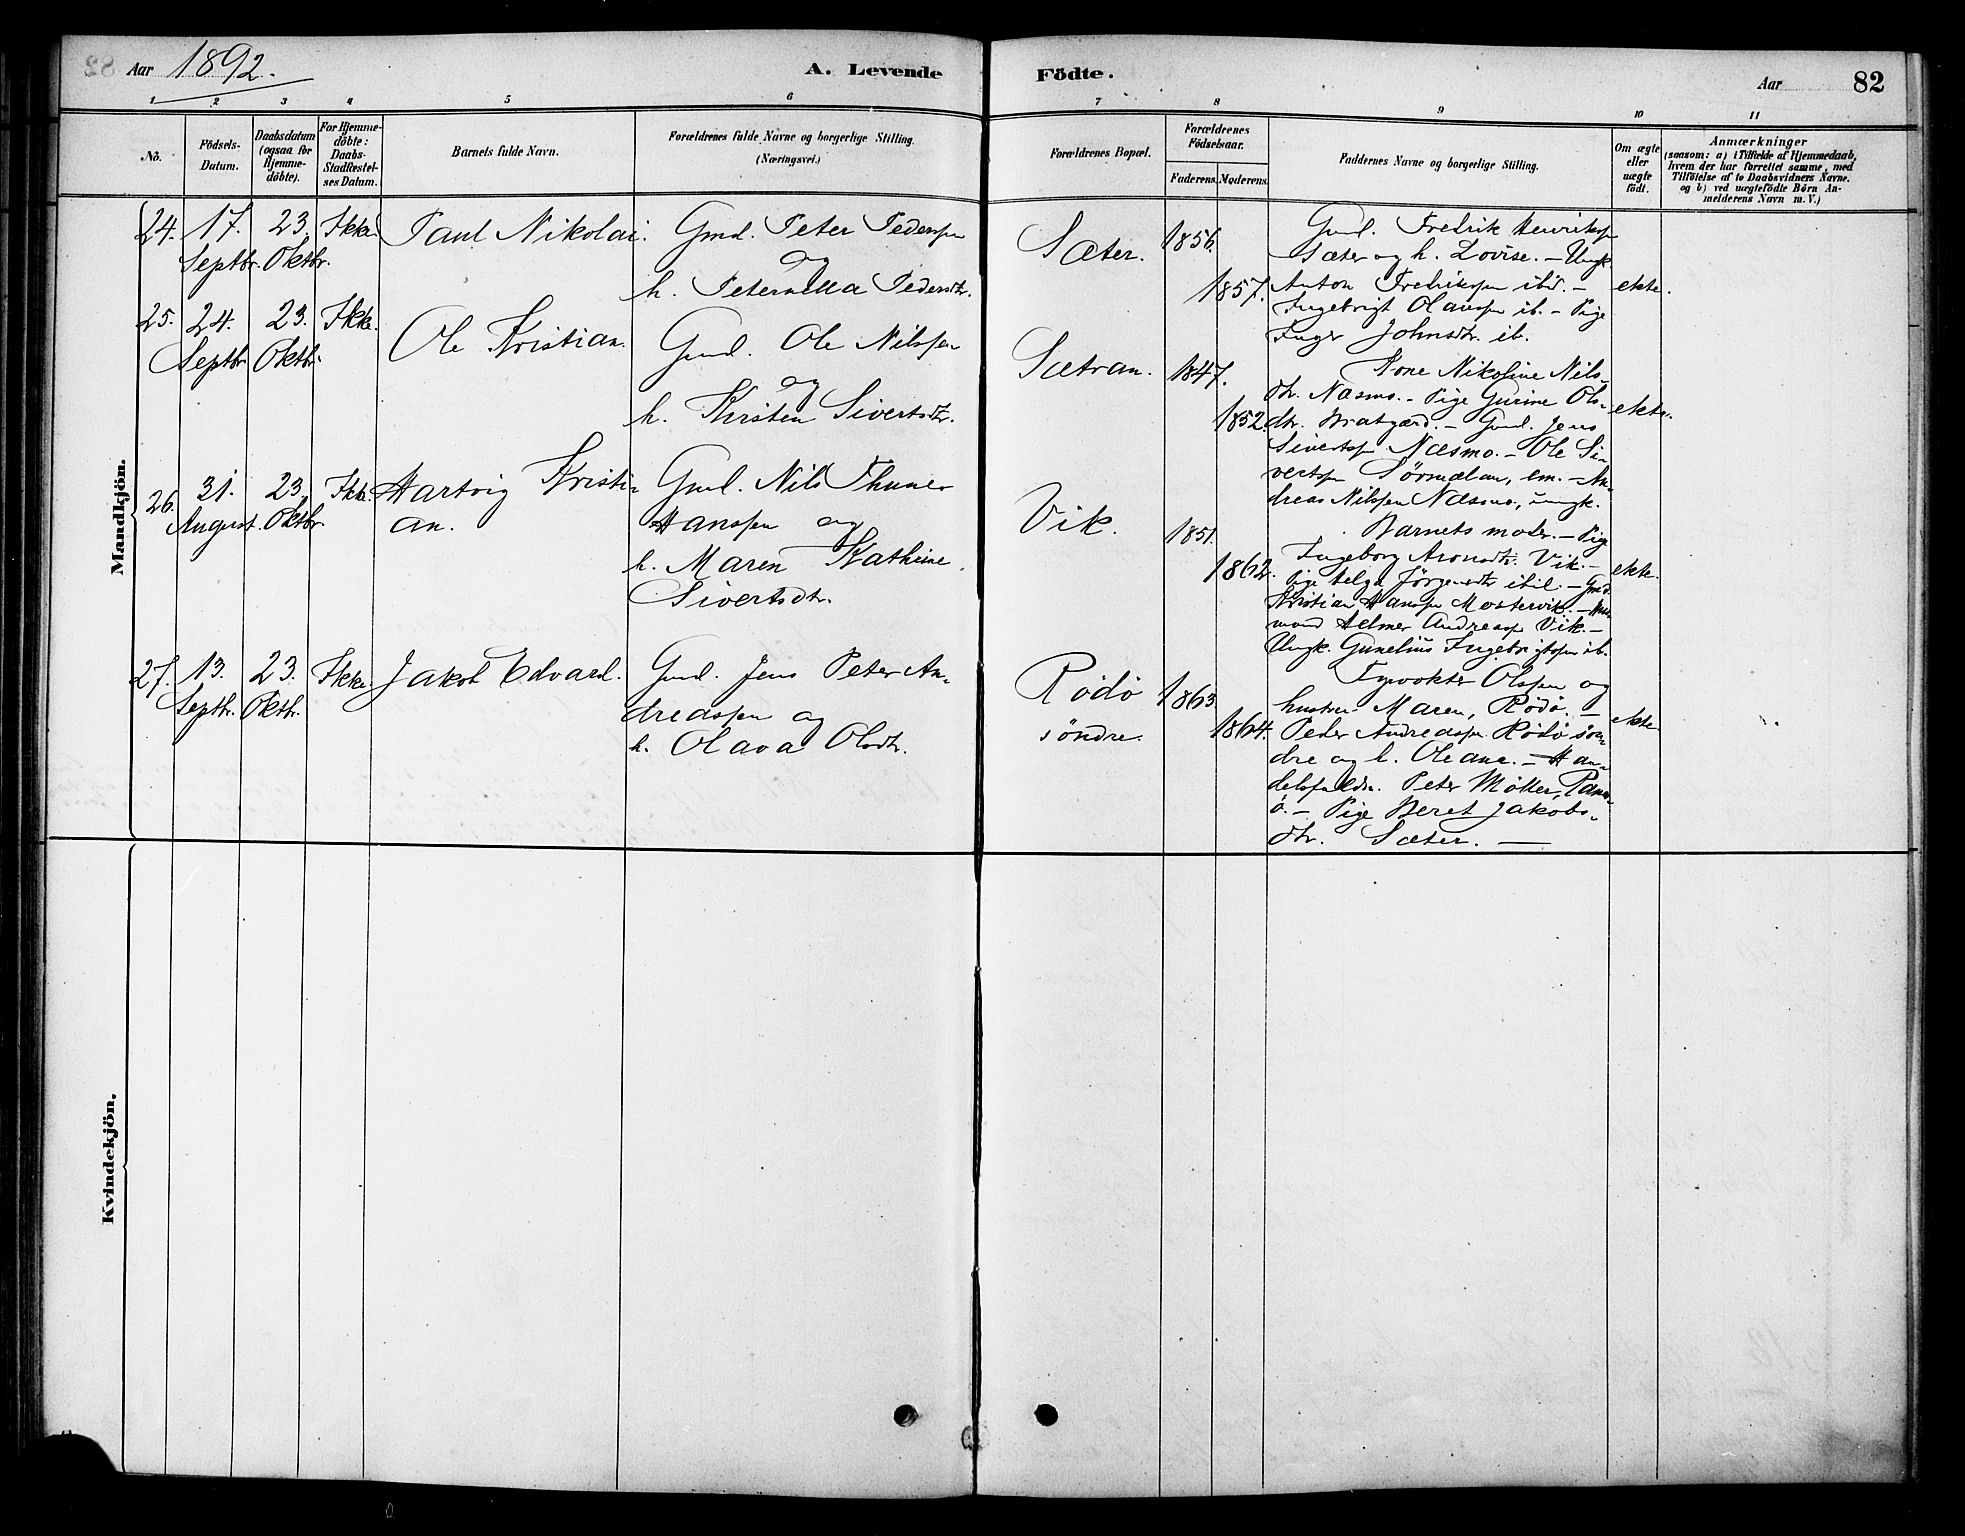 Aar 1892.
A. Levende Födte.
Aar 82
1 2 3 4 5 6 7 8 9 10 11
No.
Födsels-
Datum.
Daabsdatum
(ogsaa for
Hjemme-
döbte).
For Hjemme-
döbte:
Daabs-
Stadfæstel-
ses Datum.
Barnets fulde Navn.
Forældrenes fulde Navne og borgerlige Stilling.
(Næringsvei.)
Forældrenes Bopæl.
Forældrenes
Födselsaar.
Faderens. Moderens.
Faddernes Navne og borgerlige Stilling.
Om ægte
eller
uægte
födt.
Anmærkninger
(saasom: a) i Tilfælde af Hjemmedaab,
hvem der har forrettet samme, med
Tilföielse af to Daabsvidners Navne.
og b) ved uægtefödte Börn An-
melderens Navn m. V.)
Mandkjön.
24. 17. Septbr. 23. Oktbr. Ikke. Paul Nikolai.
Gmd. Peter Pederssen
og
h. Peternella Pedersdtr.
Sæter. 1856. 1857.
Gmd. Fredrik Henrikssen
Sæter og h. Lovise. – Ungk.
Anton Fredrikssen ibid. –
Ingebrigt Olaussen ib. – Pige
Inger Johnsdtr. ib.
ekte.
25. 24. Septbr. 23. Oktbr. Ikke. Ole Kristian.
Gmd. Ole Nilssen
og
h. Kirsten Sivertsdtr.
Sætran. 1847. 1852.
Kone Nikoline Nils-
dtr. Næsmo. – Pige Gurine Ols-
dtr. Bratgærd. – Gmd. Jens
Sivertssen Næsmo. – Ole Si-
vertssen Sørmælan, em. – An-
dreas Nilssen Næsmo, ungk.
ekte.
26. 31. August. 23. Oktbr. Ikke. Hartvig Kristi-
an.
Gmd. Nils Thunes
Hanssen og
h. Maren Kathrine
Sivertsdtr.
Vik. 1851. 1862.
Barnets moder. – Pige
Ingeborg Aronsdtr. Vik. –
Pige Helga Jörgensdtr ibid. – Gmd.
Kristian Hanssen Mostervik. – Hus-
mand Helmer Andreass. Vik. –
Ungk. Gunelius Ingebrigtssen ib.
ekte.
27. 13. Septbr. 23. Oktbr. Ikke. Jakob Edvard.
Gmd. Jens Peter An-
dreassen og
h. Olava Olsdtr.
Rödö
söndre. 1863. 1864.
Fyrvokter Olssen og
hustru Maren, Rödö. –
Peder Andreassen Rödö sön-
dre og h. Oleane. – Han-
delsfuldm. Peter Möller,
ö. – Pige Beret Jakobs-
dtr. Sæter. —
ekte.
Kvindekjön.